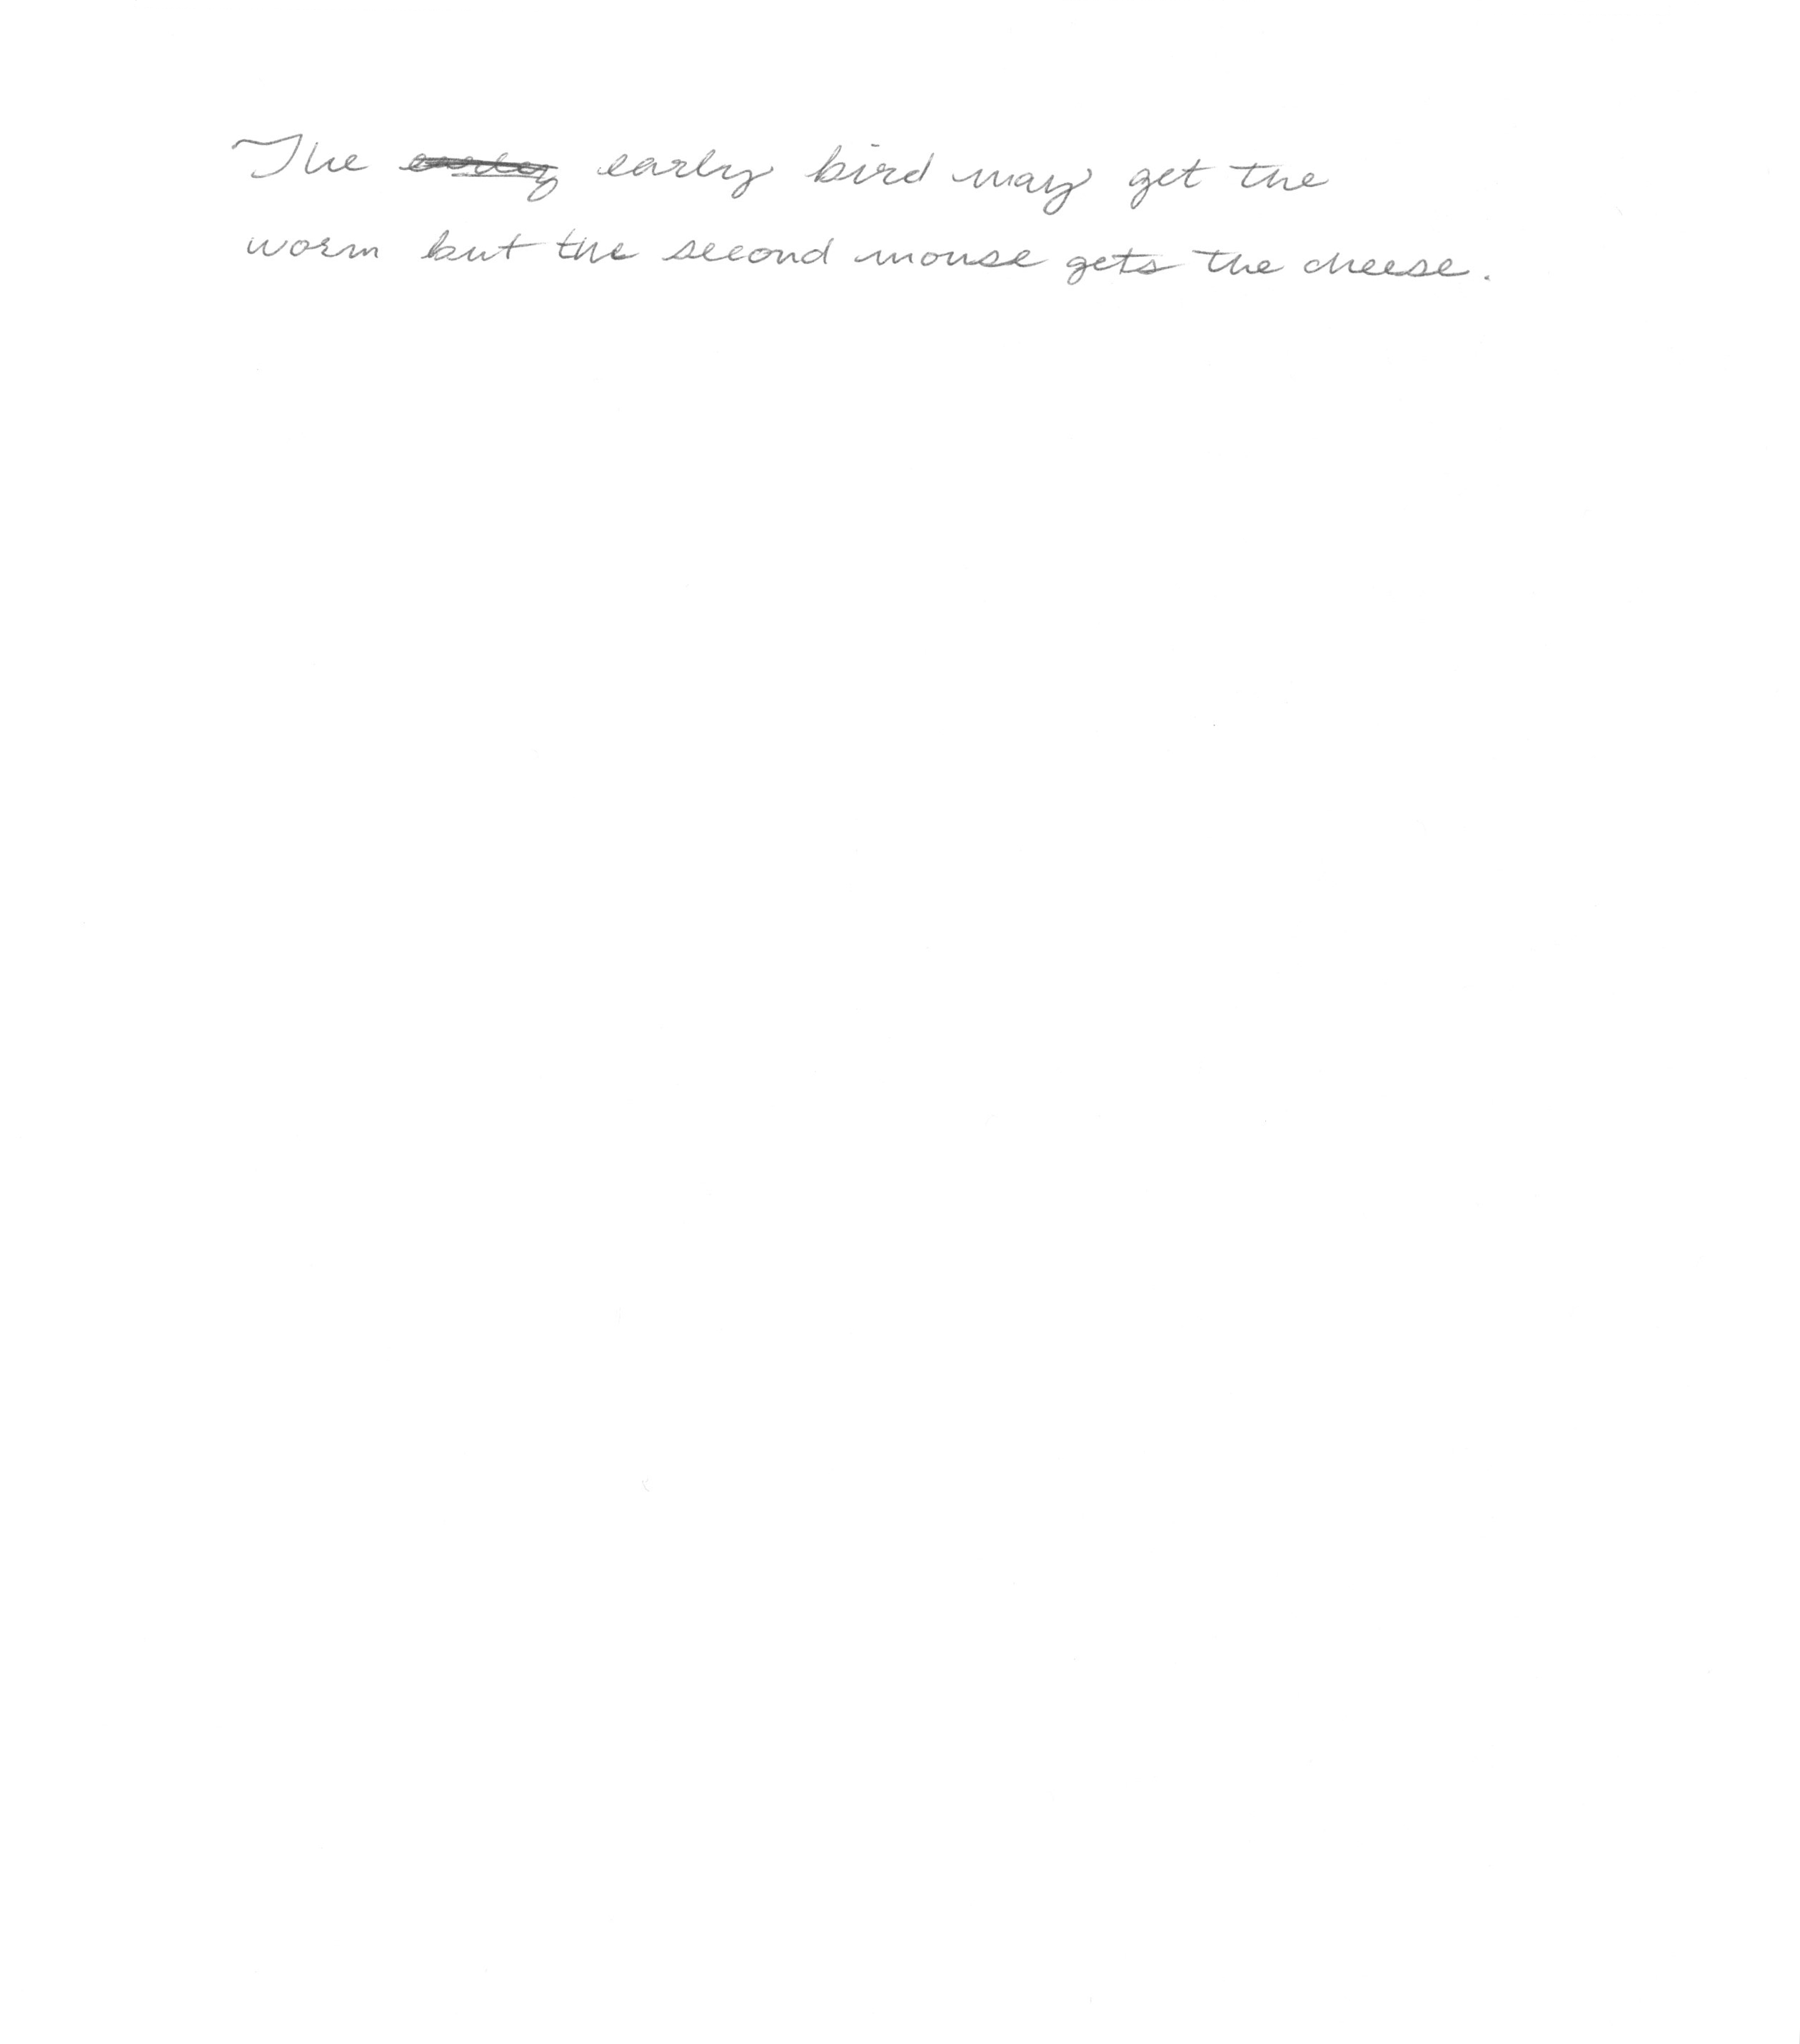 The early bird may get the
worm but the second mouse gets the cheese.